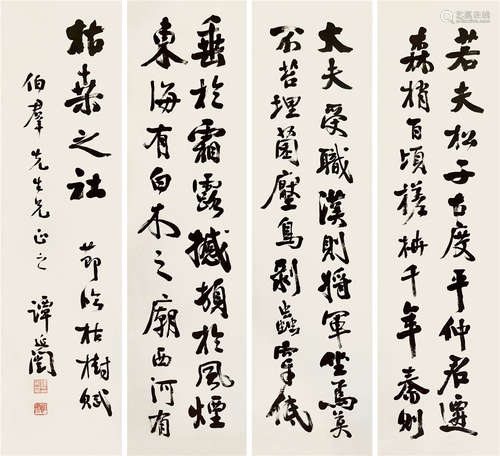 若夫松子古度平仲君遷
森梢百頃槎枿千年秦則
大夫受職漢則將軍坐焉莫
不苔埋菌壓鳥剝蟲穿低
垂於霜露撼頓於風煙
東海有白木之廟西河有
枯桑之社 節臨枯樹賦
伯羣先生兄正之 譚延闓